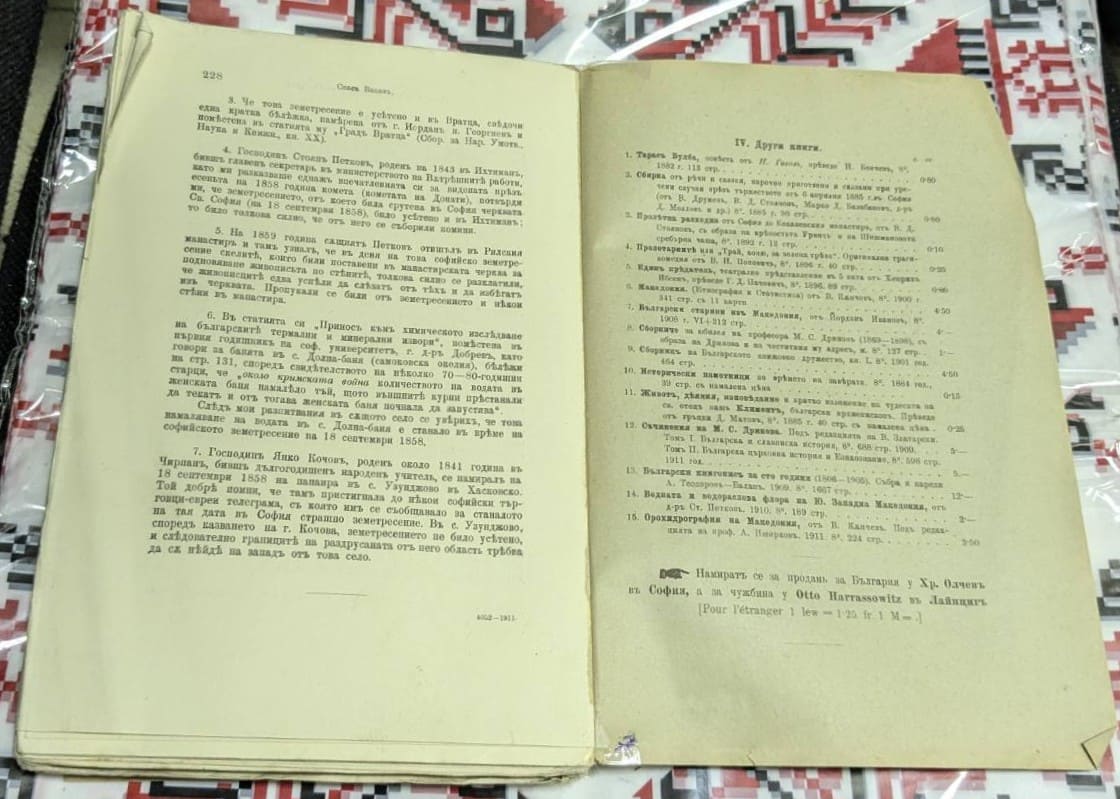 228
Спасъ Вацовъ.
3. Че това земетресение е усѣтено и въ Вратца, свѣдочи
една кратка бѣлѣжка, намѣрена отъ г. Иорданъ п. Георгиевъ и
помѣстена въ статията му „Градъ Вратца“ (Сбор. за Нар. Умотв.,
Наука и Книжн., кн. XX).
4. Господинъ Стоянъ Петковъ, роденъ на 1843 въ Ихтиманъ,
бившъ главенъ секретарь въ министерството на Вѫтрѣшнитѣ работи,
като ми разказваше еднажъ впечатленията си за видената прѣзъ
есеньта на 1858 година комета (кометата на Донати), потвърди
ми, че земетресението, отъ което била срутена въ София черквата
Св. София (на 18 септемврий 1858), било усѣтено и въ Ихтиманъ;
то било толкова силно, че отъ него се съборили комини.
5. На 1859 година сѫщиятъ Петковъ отишълъ въ Рилския
манастиръ и тамъ узналъ, че въ деня на това софийско земетре-
сение скелитѣ, които били поставени въ манастирската черква за
подновяване живописьта по стѣнитѣ, толкова силно се разклатили,
че живописцитѣ едва успѣли да слѣзатъ отъ тѣхъ и да избѣгатъ
изъ черквата. Пропукали се били отъ земетресението и нѣкои
стѣни въ манастира.
6. Въ статията си „Приносъ къмъ химическото изслѣдване
на българскитѣ термални и минерални извори“, помѣстена въ
първия годишникъ на соф. университетъ, г. д-ръ Добревъ, като
говори за банята въ с. Долна-баня (самоковска околия), бѣлѣжи
на стр. 131, споредъ свидѣтелството на нѣколко 70—80-годишни
старци, че „около кримската война количеството на водата въ
женската баня намалѣло тъй, щото външнитѣ курни прѣстанали
да текатъ и отъ тогава женската баня почнала да запустява“.
Слѣдъ мои разпитвания въ сѫщото село се увѣрихъ, че това
намаляване на водата въ с. Долна-баня е станало въ врѣме на
софийското земетресение на 18 септемврий 1858.
7. Господинъ Янко Кочовъ, роденъ около 1841 година въ
Чирпанъ, бившъ дългогодишенъ народенъ учитель, се намиралъ на
18 септември 1858 на панаира въ с. Узунджово въ Хасковско.
Той добрѣ помни, че тамъ пристигнала до нѣкои софийски тър-
говци-евреи телеграма, съ която имъ се съобщавало за станалото
на тая дата въ София страшно земетресение. Въ с. Узунджово,
споредъ казването на г. Кочова, земетресението не било усѣтено,
и слѣдователно границитѣ на раздрусаната отъ него область трѣбва
да сѫ нѣйдѣ на западъ отъ това село.
4052—1911
IV. Други книги.
1. Тарасъ Вулба, повѣсть отъ Н. Гоголь, прѣведе Н. Бончевъ, 8°.
1882 г. 113 стр. 0·80
Сбирка отъ рѣчи и сказки, нарочно приготвени и сказани при уре-
чени случаи прѣзъ тържеството отъ 6 априлия 1885 г. въ София
(отъ В. Друмевъ, В. Д. Стояновъ, Марко Д. Балабановъ, д-ръ
Д. Молловъ и др.) 8°. 1885 г. 96 стр.
Пролѣтна разходка отъ София до Кокалянския манастиръ, отъ В. Д.
Стояновъ, съ образа на крѣпостьта Урвичъ и на Шишмановата
сребърна чаша, 8°. 1892 г. 12 стр. 0·10
4. Пролетариитѣ или „Трай, коню, за зелена трѣва“. Оригинална траги-
комедия отъ В. Н. Поповичъ, 8°. 1896 г. 40 стр. 0·25
5. Единъ крѣдителъ, театрално прѣдставление въ 5 акта отъ Хенрихъ
Ибсенъ, прѣведе Г. Д. Начовичъ, 8°. 1896. 89 стр.
6. Македония. (Етнография и Статистика) отъ В. Кѫнчовъ, 8°. 1900 г.
341 стр. съ 11 карти 4·50
7. Български старини изъ Македония, отъ Йорданъ Ивановъ, 8°.
1908 г. VI+312 стр. 4·—
8. Сборниче за юбилея на професора М. С. Дриновъ (1869—1899), съ
образа на Дринова и на честитката му адресъ, м. 8°. 127 стр. 1·—
9. Сборникъ на Българското книжовно дружество, кн. I. 8°. 1901 год.
464 стр. 4·50
10. Исторически паметници по врѣнето на завѣрата. 8°. 1884 год.,
39 стр. съ намалена цѣна 0·15
11. Животъ, дѣяния, изповѣдание и кратко изложение на чудесата на
св. отецъ нашъ Климентъ, български архиепископъ. Прѣведе
отъ гръцки Д. Матовъ, 8°. 1885 г. 40 стр. съ намалена цѣна 0·25
12. Съчинения на М. С. Дринова. Подъ редакцията на В. Златарски.
Томъ I. Българска и славянска история, 8°. 688 стр. 1909. 5·—
Томъ II. Българска църковна история и Езикознание, 8°. 598 стр.
1911 год. 5·—
13. Български книгописъ за сто години (1806—1905). Събра и нареди
А. Теодоровъ—Баланъ. 1909. 8°. 1667 стр. 12·—
14. Водната и водораслова флора на Ю. Западна Македония, отъ
д-ръ Ст. Петковъ. 1910. 8°. 189 стр. 2·—
15. Орохидрография на Македония, отъ В. Кѫнчевъ. Подъ редак-
цията на проф. А. Иширковъ. 1911. 8°. 224 стр. 2·50
Намиратъ се за продань за България у Хр. Олчевъ
въ София, а за чужбина у Otto Harrassowitz въ Лайпцигъ
[Pour l'étranger 1 lew = 1·25 fr 1 M= .]